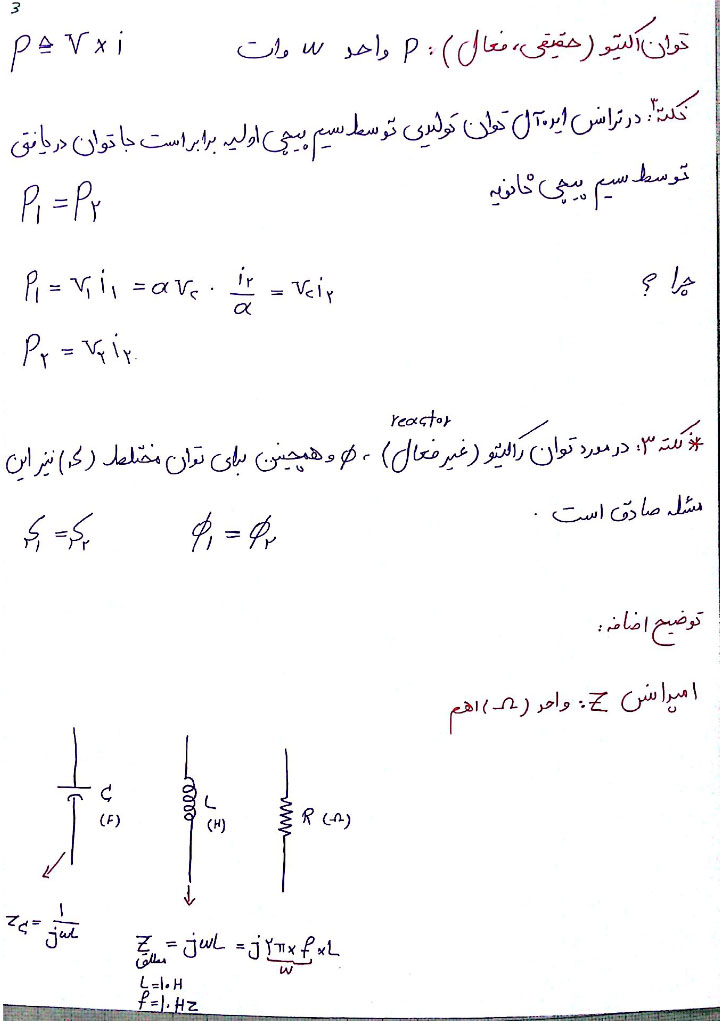 3
توان اکتیو (حقیقی، فعال): P واحد W وات P ≜ V × i
نکته ۲: در ترانس ایده‌آل توان تولیدی توسط سیم پیچی اولیه برابر است با توان دریافتی
توسط سیم پیچی ثانویه
P₁ = P₂
چرا ؟
P₁ = V₁ i₁ = α V₂ · i₂/α = V₂ i₂
P₂ = V₂ i₂
reactor
* نکته ۳: در مورد توان راکتیو (غیر فعال)، φ و همچنین برای توان مختلط (S) نیز این
مسئله صادق است .
φ₁ = φ₂
S₁ = S₂
توضیح اضافه:
امپدانس Z: واحد (Ω) اهم
C
(F)
L
(H)
R (Ω)
Z_C = 1/jωL
Z مطلق = jωL = j ۲π × f × L
ω
L = ۱۰ H
f = ۱۰ Hz